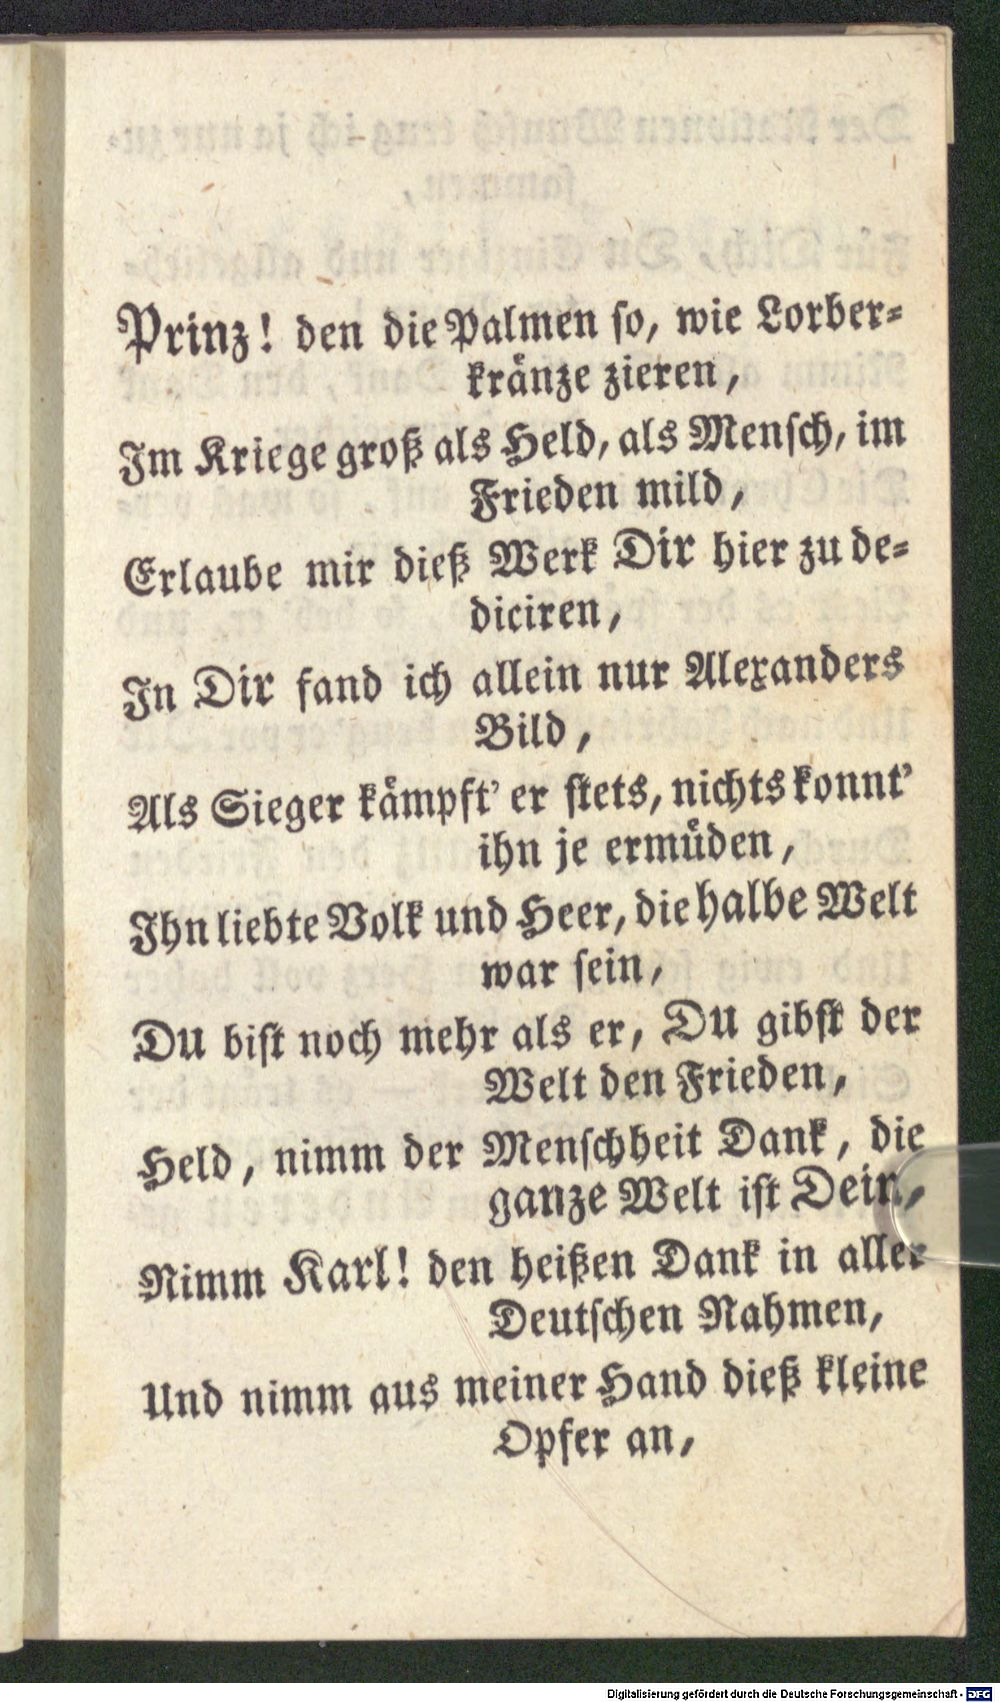 Prinz! den die Palmen so, wie Lorber-
kränze zieren,
Im Kriege groß als Held, als Mensch, im
Frieden mild,
Erlaube mir dieß Werk Dir hier zu de-
diciren,
In Dir fand ich allein nur Alexanders
Bild,
Als Sieger kämpft' er stets, nichts konnt'
ihn je ermüden,
Ihn liebte Volk und Heer, die halbe Welt
war sein,
DU bist noch mehr als er, DU gibst der
Welt den Frieden,
Held, nimm der Menschheit Dank, die
ganze Welt ist Dein,
Nimm Karl! den heißen Dank in aller
Deutschen Nahmen,
Und nimm aus meiner Hand dieß kleine
Opfer an,
Digitalisierung gefördert durch die Deutsche Forschungsgemeinschaft - DFG